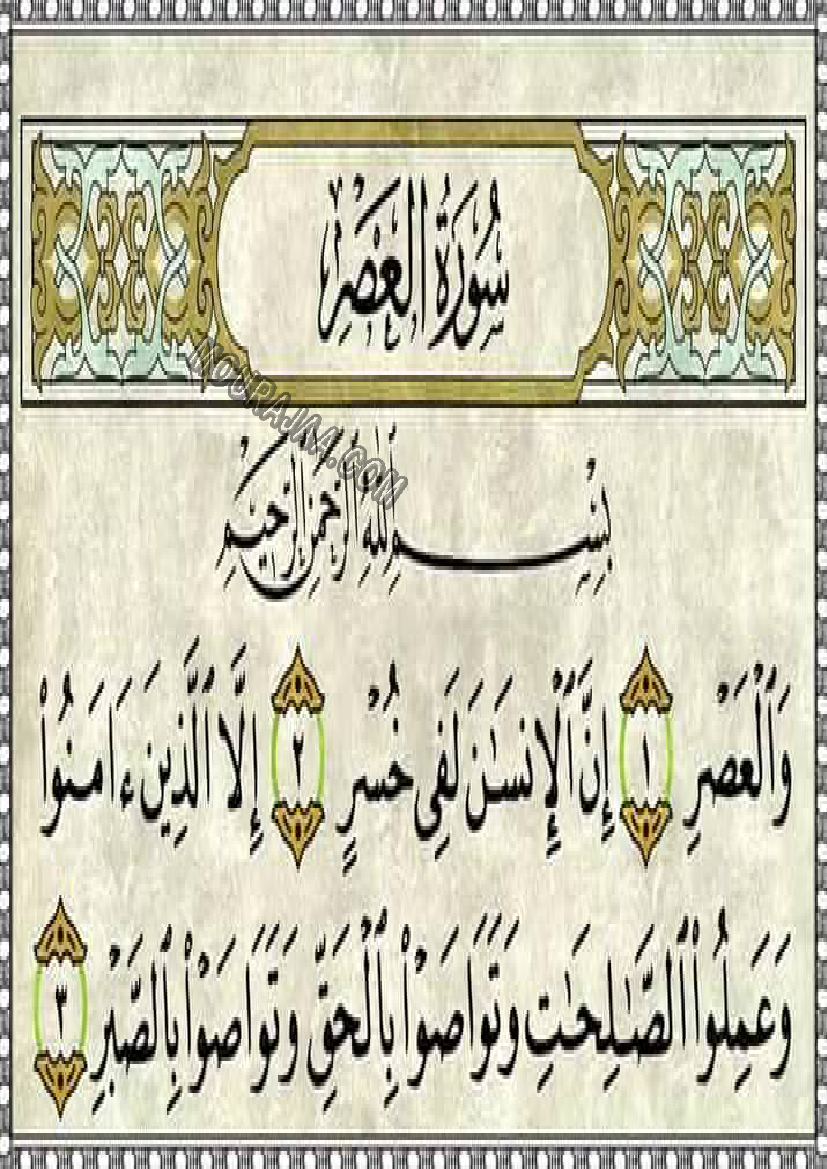 سُورَةُ العَصْرِ
MOURAJAA.COM
بِسْمِ اللَّهِ الرَّحْمَٰنِ الرَّحِيمِ
وَٱلْعَصْرِ ١ إِنَّ ٱلْإِنسَٰنَ لَفِى خُسْرٍ ٢ إِلَّا ٱلَّذِينَ ءَامَنُوا۟
وَعَمِلُوا۟ ٱلصَّٰلِحَٰتِ وَتَوَاصَوْا۟ بِٱلْحَقِّ وَتَوَاصَوْا۟ بِٱلصَّبْرِ ٣